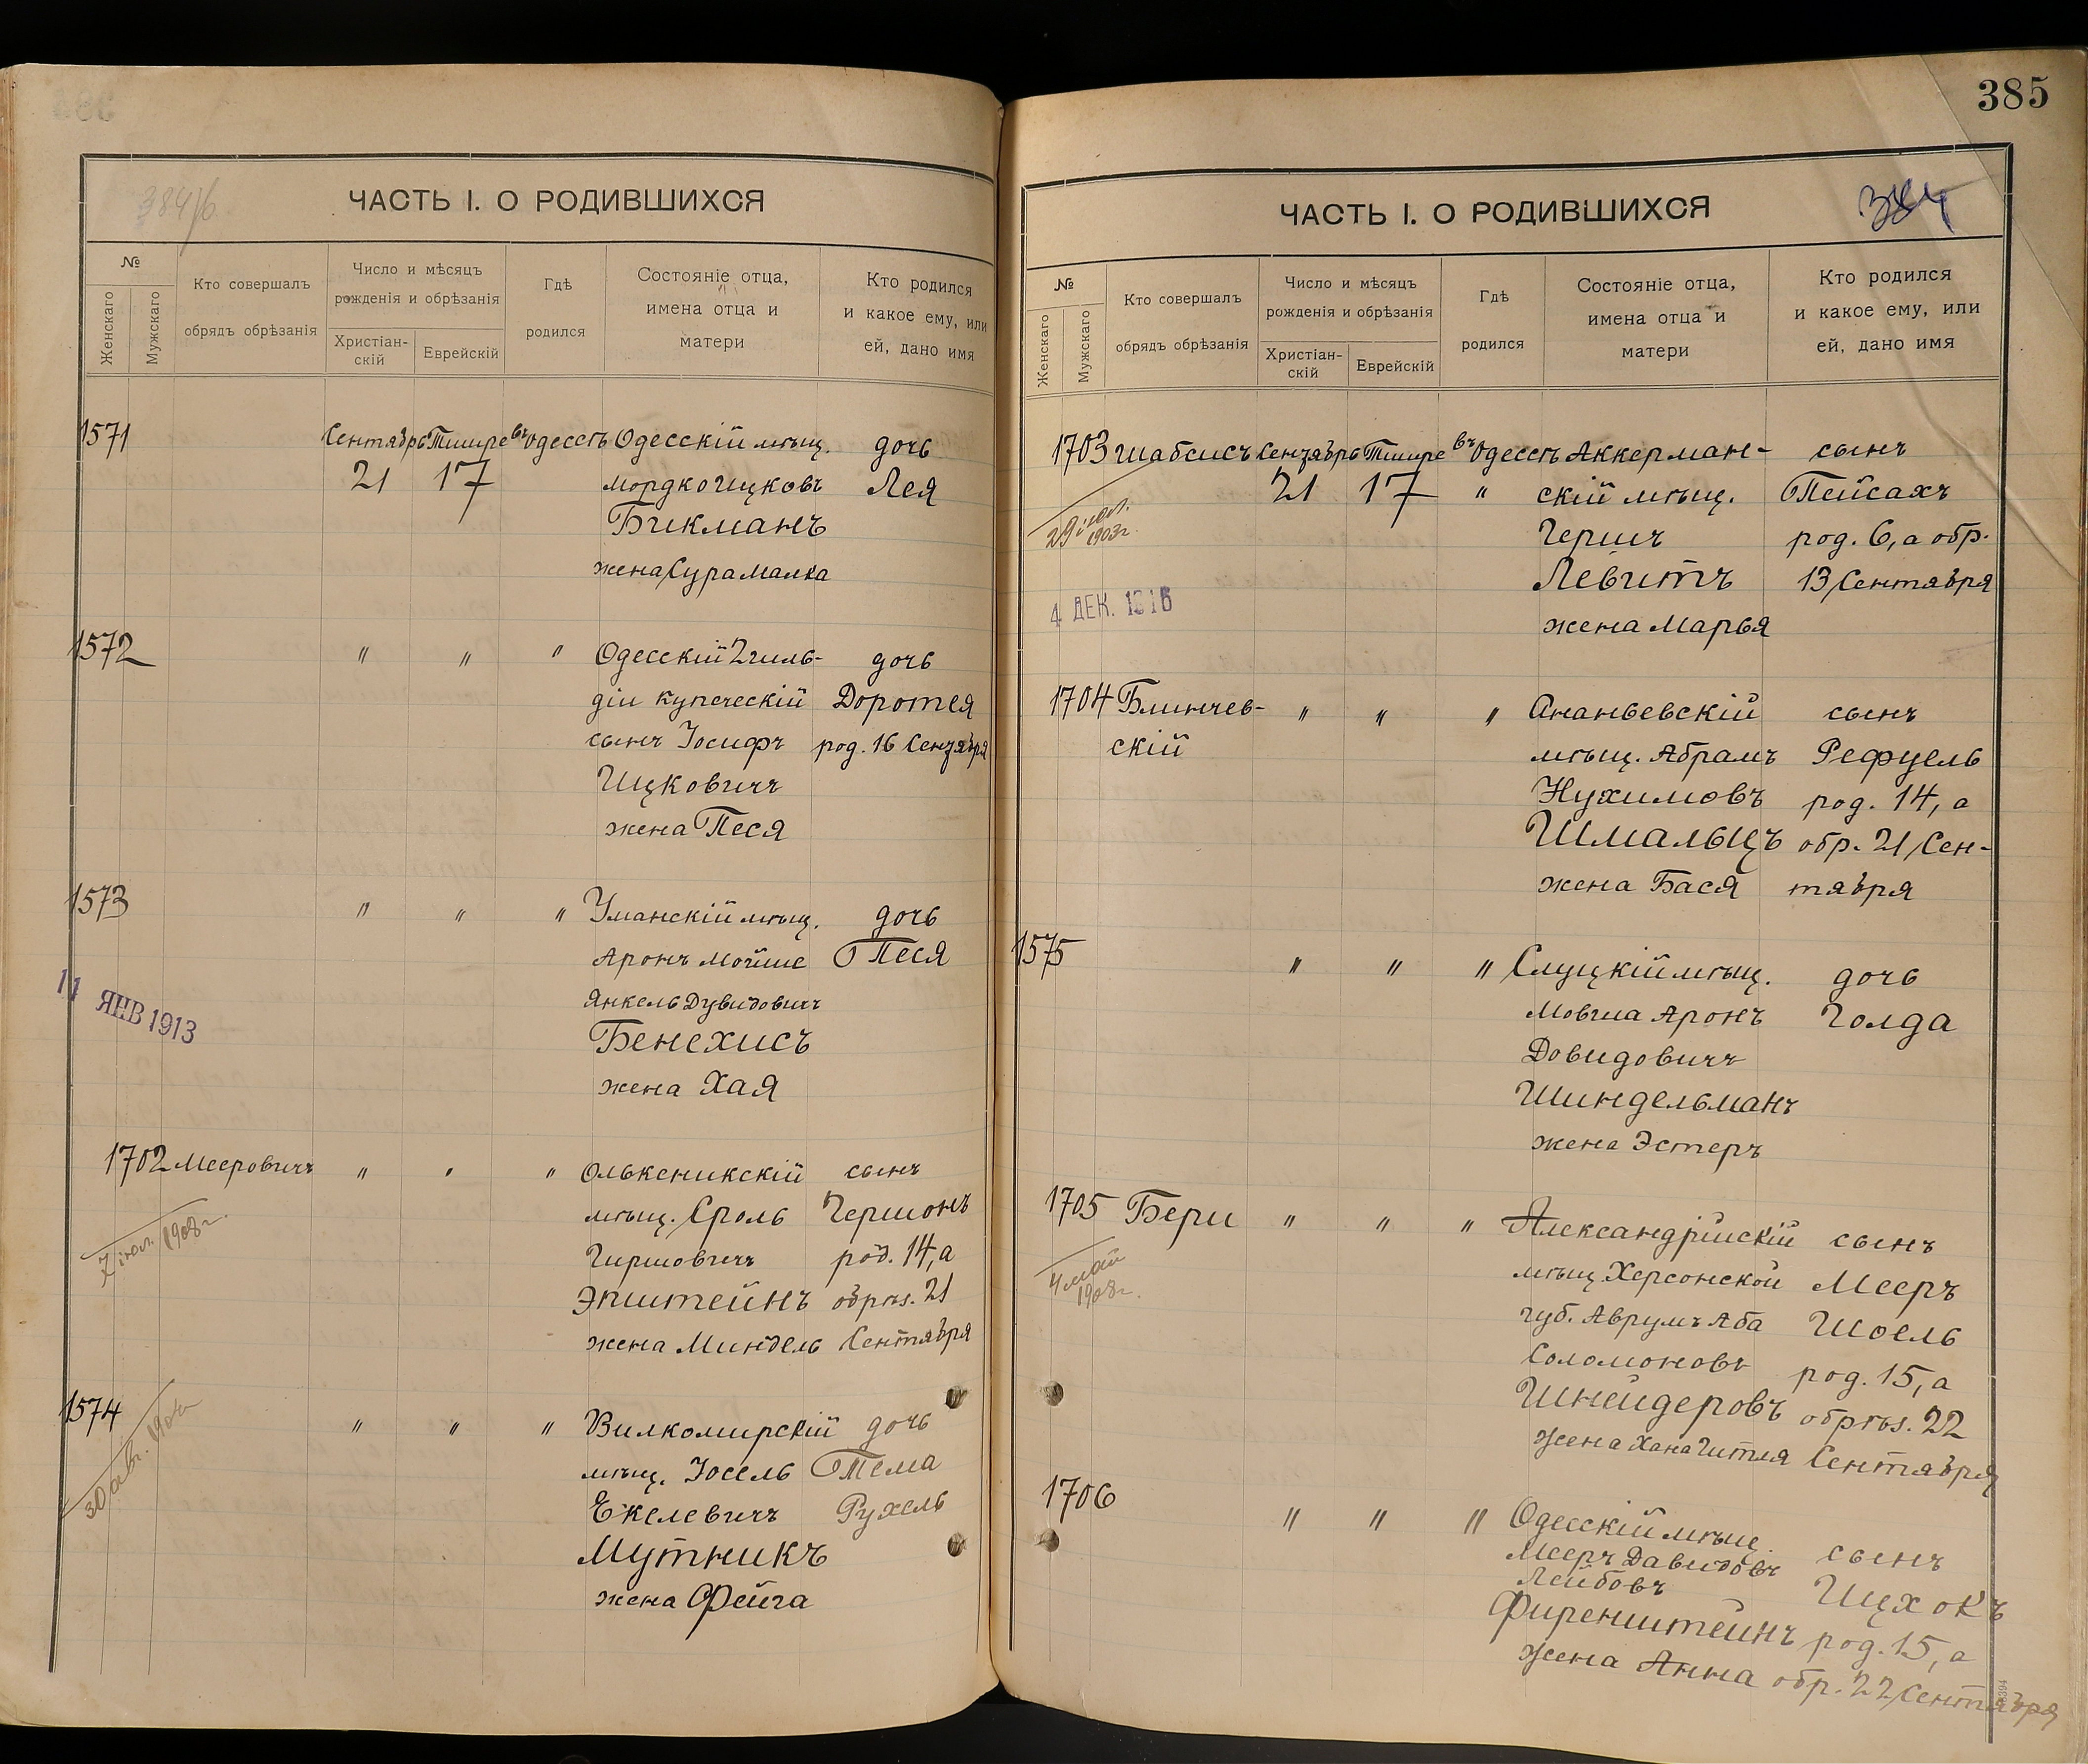 384/б
ЧАСТЬ I. О РОДИВШИХСЯ
№
Женскаго
Мужскаго
Кто совершалъ
обрядъ обрѣзанія
Число и мѣсяцъ
рожденія и обрѣзанія
Христіан-
скій
Еврейскій
Гдѣ
родился
Состояніе отца,
имена отца и
матери
Кто родился
и какое ему, или
ей, дано имя
1571 Сентябрь Тишре въ Одессѣ Одесскій мѣщ. дочь
21 17 Мордко Ицковъ Лея
Бикманъ
жена Сура Малка
1572 " " " Одесскій 2 гиль- дочь
діи купеческій Доротея
сынъ Іосифъ род. 16 Сентября
Ицковичъ
жена Песя
1573 " " " Уманскій мѣщ. дочь
Аронъ Мойше Песя
Янкель Дувидовичъ
11 ЯНВ 1913
Бенехисъ
жена Хая
1702 Мееровичъ " " " Олькеникскій сынъ
мѣщ. Сроль Гершонъ
7 іюл. 1908 г.
Гиршовичъ род. 14, а
Эпштейнъ обрѣз. 21
жена Миндель Сентября
1574 " " " Вилкомирскій дочь
30 авг.
мѣщ. Іосель Тема
Екелевичъ Рухель
Мутникъ
жена Фейга
385
384
ЧАСТЬ I. О РОДИВШИХСЯ
№
Женскаго
Мужскаго
Кто совершалъ
обрядъ обрѣзанія
Число и мѣсяцъ
рожденія и обрѣзанія
Христіан-
скій
Еврейскій
Гдѣ
родился
Состояніе отца,
имена отца и
матери
Кто родился
и какое ему, или
ей, дано имя
1703 Шабсисъ Сентябрь Тишре въ Одессѣ Аккерман- сынъ
21 17 " скій мѣщ. Пейсахъ
29 іюл.
1903 г.
Гершъ род. 6, а обр.
Левитъ 13 Сентября
4 ДЕК. 1916
жена Марья
1704 Блинчев- " " " Ананьевскій сынъ
скій мѣщ. Абрамъ Рефуель
Нухимовъ род. 14, а
Шмалыцъ обр. 21 Сен-
жена Бася тября
1575 " " " Слуцкій мѣщ. дочь
Мовша Аронъ Голда
Довидовичъ
Шиндельманъ
жена Эстеръ
1705 Бери " " " Александрійскій сынъ
4 май
1908 г.
мѣщ. Херсонской Мееръ
губ. Аврумъ Аба Шоель
Соломоновъ род. 15, а
Шнейдеровъ обрѣз. 22
жена Хана Гитля Сентября
1706 " " " Одесскій мѣщ. сынъ
Мееръ Давидовъ
Лейбовъ Ицхокъ
Фиренштейнъ род. 15, а
жена Анна обр. 22 Сентября